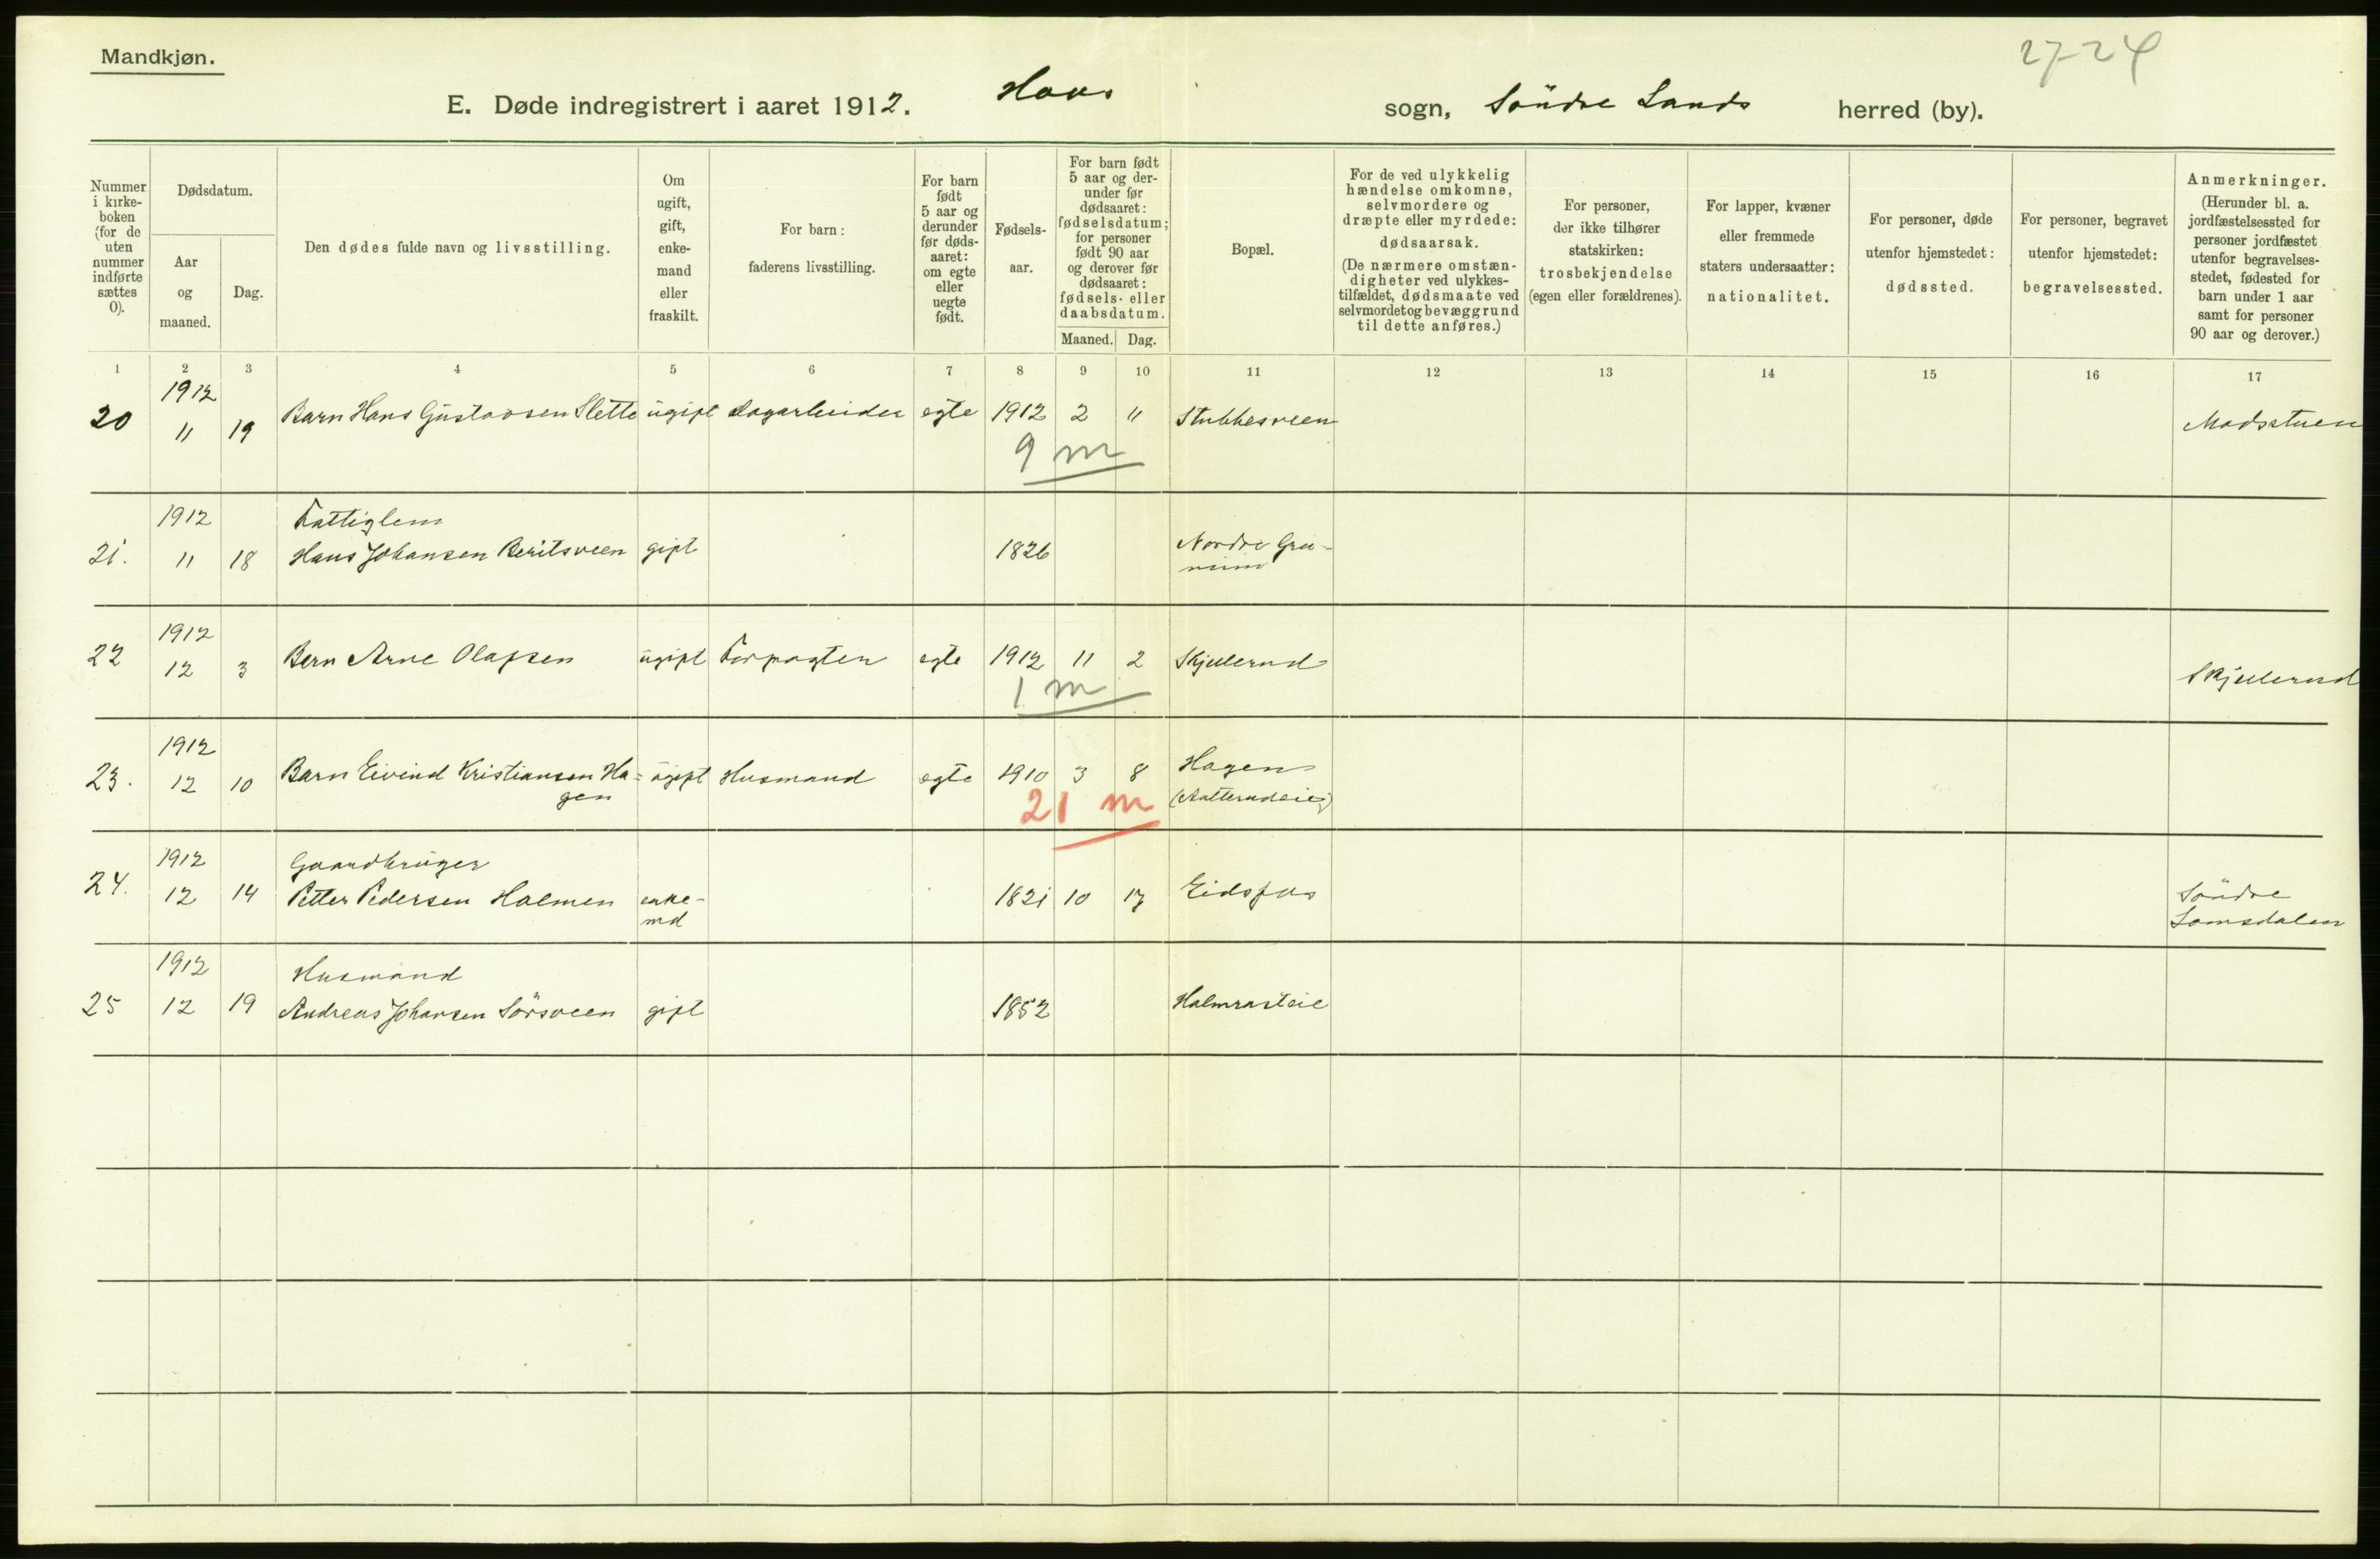 Mandkjøn.
27-24
E. Døde indregistrert i aaret 1912. Hovs sogn, Søndre Lands herred (by).
Nummer i kirkeboken (for de uten nummer indførte sættes 0).
Dødsdatum.
Aar og maaned.
Dag.
Den dødes fulde navn og livsstilling.
Om ugift, gift, enkemand eller fraskilt.
For barn: faderens livsstilling.
For barn født 5 aar og derunder før dødsaaret: om egte eller uegte født.
Fødselsaar.
For barn født 5 aar og derunder før dødsaaret: fødselsdatum; for personer født 90 aar og derover før dødsaaret: fødsels- eller daabsdatum.
Maaned. Dag.
Bopæl.
For de ved ulykkelig hændelse omkomne, selvmordere og dræpte eller myrdede: dødsaarsak. (De nærmere omstændigheter ved ulykkestilfældet, dødsmaate ved selvmordet og bevæggrund til dette anføres.)
For personer, der ikke tilhører statskirken: trosbekjendelse (egen eller forældrenes).
For lapper, kvæner eller fremmede staters undersaatter: nationalitet.
For personer, døde utenfor hjemstedet: dødssted.
For personer, begravet utenfor hjemstedet: begravelsessted.
Anmerkninger. (Herunder bl. a. jordfæstelsessted for personer jordfæstet utenfor begravelsesstedet, fødested for barn under 1 aar samt for personer 90 aar og derover.)
1 2 3 4 5 6 7 8 9 10 11 12 13 14 15 16 17
1912
20 11 19 Barn Hans Gustavsen Slette ugift dagarbeider egte 1912 2 11 Stubbesveen Madsstuen
9 m
1912 Fattiglem
21. 11 18 Hans Johansen Beritsveen gift 1826 Nordre
1912
22 12 3 Barn Arne Olafsen ugift Forpagter egte 1912 11 2 Skjelerud Skjelerud
1 m
1912
23. 12 10 Barn Eivind Kristiansen Ha= ugift Husmand egte 1910 3 8 Hagen
gen
21 m
1912 Gaardbruger
24. 12 14 Petter Pedersen Holmen enke- 1821 10 17 Eidsfos Søndre
md Lomsdalen
1912 Husmand
25 12 19 Andreas Johansen Sørsveen gift 1852 Halmrasteie